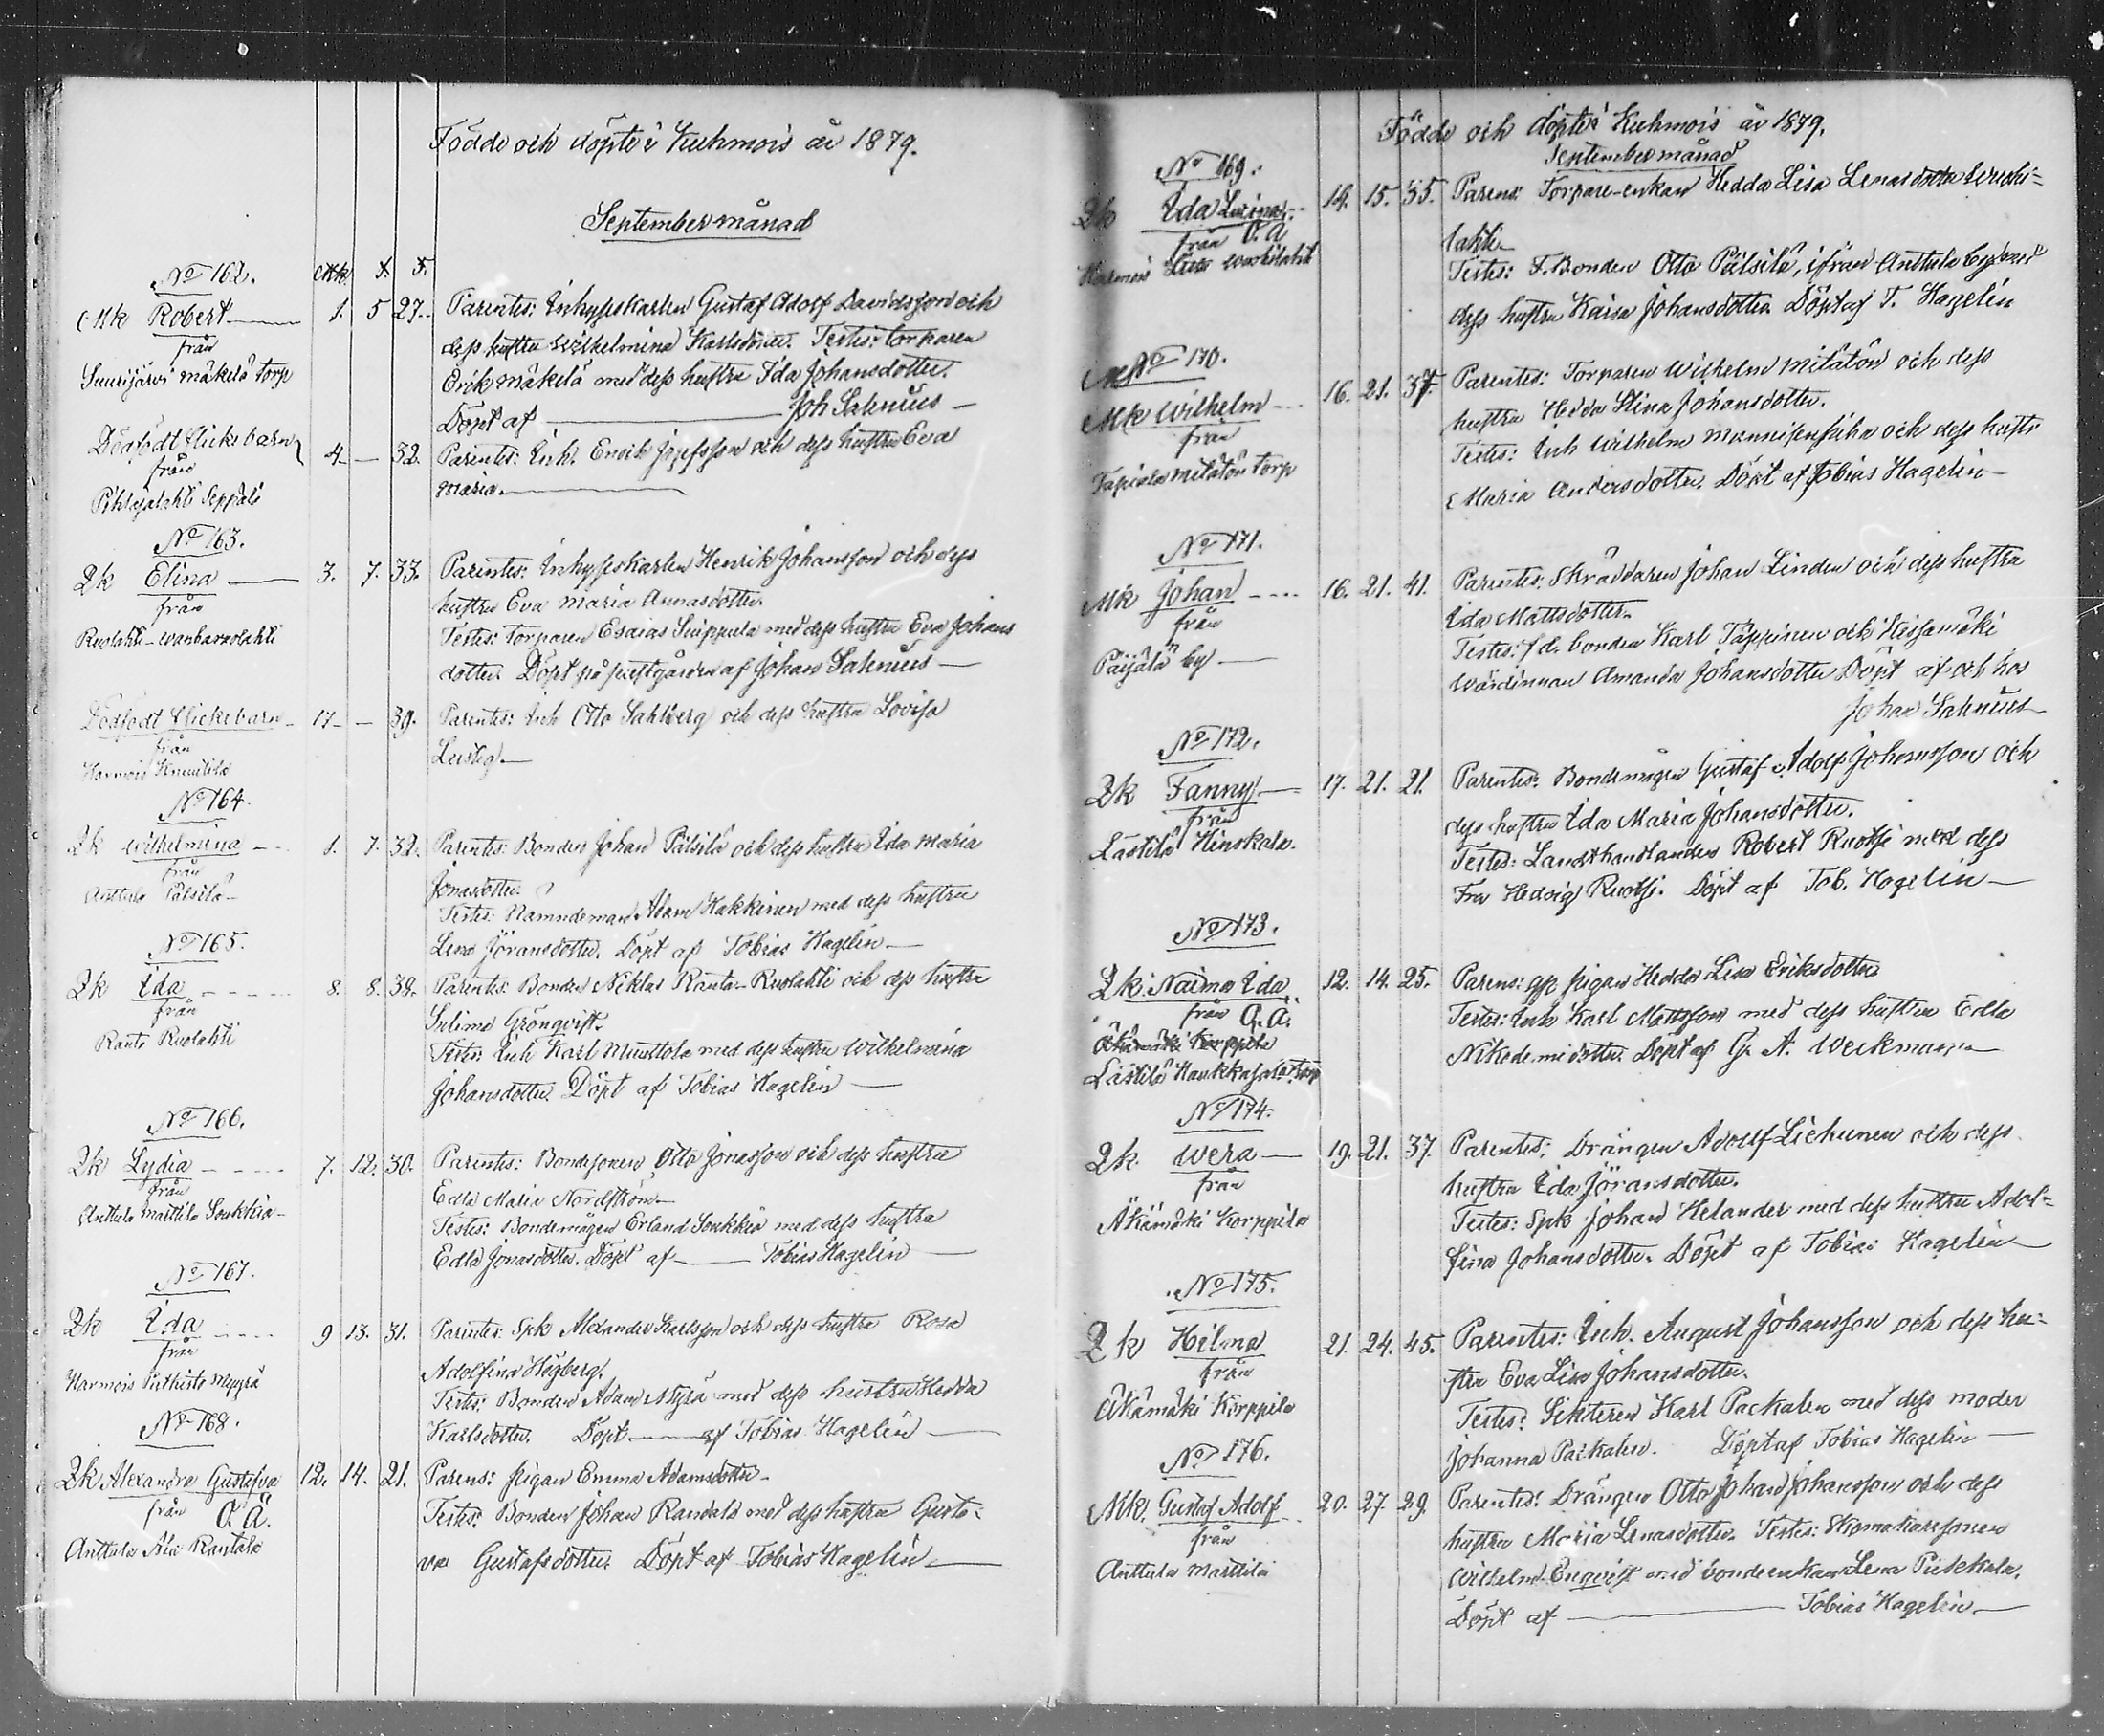 Födde och döpte i Kuhmois år 1879.
September månad
No 162. Mk. X. F.
Mk Robert — 1. 5 27. Parentes: Inhysskarlen Gustaf Adolf Davidsson och
från dess hustru Wilhelmina Karlsdotter. Testes: torparen
Suurijärvi Mäkelä torp Erik Mäkelä med dess hustru Ida Johansdotter.
Döpt af — Joh Salenius —
Dödfödt flickebarn 4. — 32. Parentes: Inh. Enok Josefsson och dess hustru Eva
från Maria. —
Pihlajalahti Seppälä
No 163.
Qk Elina — 3. 7. 33. Parentes: Inhysskarlen Henrik Johansson och dess
från hustru Eva Maria Annasdotter.
Ruolahti Testes: torparen Esaias Seippula med dess hustru Eva Johans
dotter. Döpt på prestgården af Johan Salenius —
Dödfödt flickebarn — 17 — — 39. Parentes: Inh Otto Sahlberg och dess hustru Lovisa
från Lustig —
Harmois Knuutila
No 164.
Qk Wilhelmina — 1. 7. 32. Parentes: Bonden Johan Pälsilä och dess hustru Ida Maria
från Jonasdotter.
Anttula Pälsilä — Testes: Nämndeman Adam Hakkinen med dess hustru
Lena Göransdotter. Döpt af Tobias Hagelin —
No 165.
Qk Ida - - - - 8. 8. 38. Parentes: Bonden Niklas Ranta-Ruolahti och dess hustru
från Selima Grönqvist.
Ranta Ruolahti Testes: Inh Karl Muuttola med dess hustru Wilhelmina
Johansdotter. Döpt af Tobias Hagelin —
No 166.
Qk Lydia - - - - 7. 12. 30. Parentes: Bondesonen Otto Jonasson och dess hustru
från Edla Maria Nordström —
Anttula Marttila Soukkia — Testes: Bondemågen Erland Soukkia med dess hustru
Edla Jonasdotter. Döpt af — Tobias Hagelin —
No 167.
Qk Ida - - - - 9 13. 31. Parentes: Spk Alexander Karlsson och dess hustru Rosa
från Adolfina Högberg.
Harmois Testes: Bonden Adam Mÿrä med dess hustru Hedda
Karlsdotter. Döpt — af Tobias Hagelin —
No 168.
Qk Alexandra Gustafva 12. 14. 21. Parens: pigan Emma Adamsdotter —
från O. Ä. Testes: Bonden Johan Rantala med dess hustru Gusta-
Anttula Ala Rantala va Gustafsdotter. Döpt af Tobias Hagelin —
Födde och döpte i Kuhmois år 1879.
September månad
No 169.
Qk Ida - - 14. 15. 35. Parens: Torpare-enkan Hedda Lisa Lenasdotter Wuohi-
från O. Ä lahti —
Harmois Wuohilahti Testes: F. Bonden Otto Pälsilä, ifrån Anttula by med
dess hustru Kaisa Johansdotter. Döpt af T. Hagelin
No 170.
Mk Wilhelm - - - 16. 21. 37. Parentes: Torparen Wilhelm Mitätön och dess
från hustru Hedda Stina Johansdotter.
Tapiala Mitätön torp Testes: Inh Wilhelm och dess hustr
Maria Andersdotter. Döpt af Tobias Hagelin —
No 171.
Mk Johan - - - - 16. 21. 41. Parentes: Skräddaren Johan Linden och dess hustru
från Ida Mattsdotter.
Päijälä by — Testes: f d. bonden Karl Täppinen och Hissamäki
wärdinnan Amanda Johansdotter Döpt af och hos
Johan Salenius —
No 172.
Qk Fanny — 17. 21. 21. Parentes: Bondemågen Gustaf Adolf Johansson och
från dess hustru Ida Maria Johansdotter.
Lästilä Hinskala. Testes: Landthandlanden Robert Ruotsi med dess
Fru Hedvig Ruotsi. Döpt af Tob. Hagelin —
No 173.
Qk. Naima Ida 12. 14. 25. Parens: pigan Hedda Lisa Eriksdotter
från O. Ä. Testes: Inh Karl Mattsson med dess hustru Edla
Äkämäki Korppila Nikodemidotter. Döpt af G. A. Weckman —
Lästilä Haukkasalo torp
No 174.
Qk Wera — 19. 21. 37. Parentes: Drängen Adolf Lichunen och dess
från hustru Ida Göransdotter.
Äkämäki Korppila Testes: Spk Johan Helander med dess hustru Adol-
fina Johansdotter. Döpt af Tobias Hagelin —
No 175.
Qk Hilma 21. 24. 45. Parentes: Inh. August Johansson och dess hu-
från stru Eva Lisa Johansdotter.
Äkämäki Korppila Testes: Karl Packalen med dess moder
Johanna Packalen. Döpt af Tobias Hagelin —
No 176.
Mk. Gustaf Adolf 20. 27 29. Parentes: Drängen Otto Johan Johansson och dess
från hustru Maria Lenasdotter. Testes: Skomakaresonen
Anttula Marttila Wilhelm Enqvist med bondeenkan Lena
Döpt af — Tobias Hagelin —